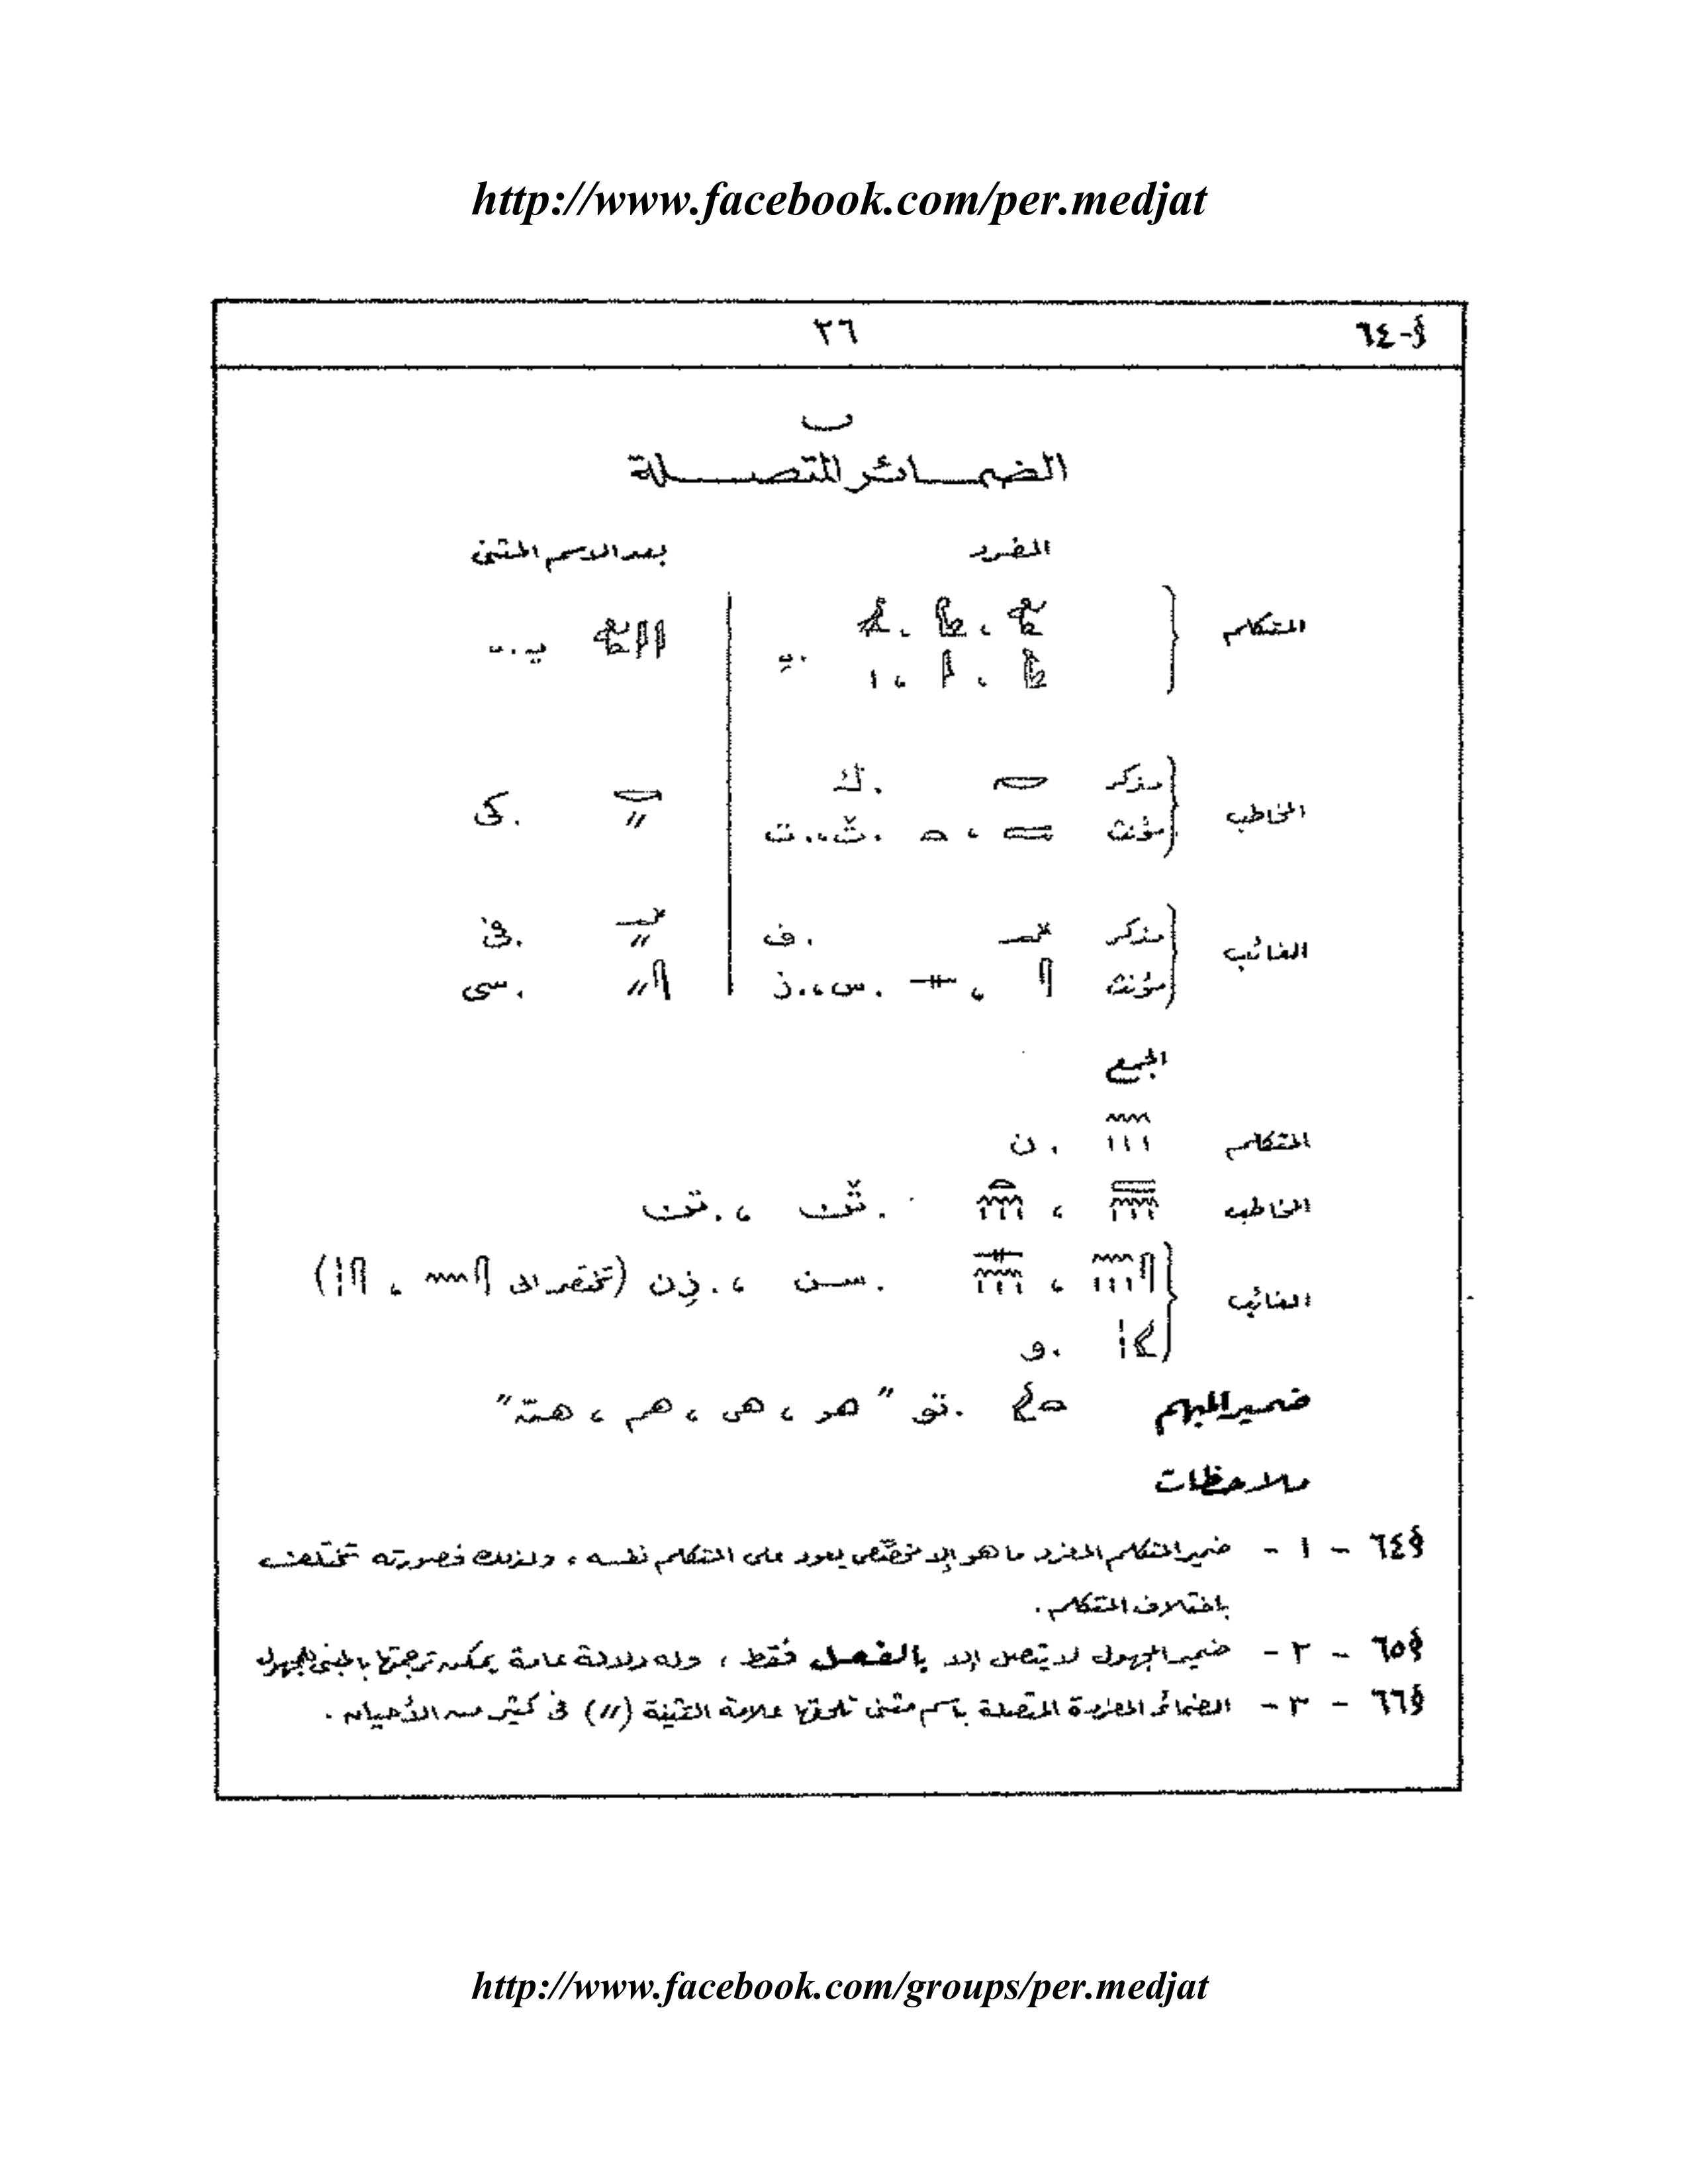 http://www.facebook.com/per.medjat
§-٦٤ ٣٦
ب
الضمائر المتصلة
المفرد بعد الاسم المثنى
المتكلم
المخاطب مذكر .ك .كى
مؤنث .ت
الغائب مذكر .ف .فى
مؤنث .س ،.ز .سى
الجمع
المتكلم .ن
المخاطب
الغائب .سن ،.زن (تختصر الى ، )
.و
ضمير المبهم .تو "هو ، هى ، هم ، هنّ"
ملاحظات
§٦٤ - ١ - ضمير المتكلم المفرد ما هو إلا مخصّص يعود على المتكلم نفسه ، ولذلك فصورته تختلف
باختلاف المتكلم .
§٦٥ - ٢ - ضمير المجهول لا يتصل إلا بالفعل فقط ، وله دلالة عامة يمكن ترجمتها بالمبنى للمجهول
§٦٦ - ٣ - الضمائر المفردة المتصلة باسم مثنى تلحقها علامة التثنية (〃) فى كثير من الأحيان .
http://www.facebook.com/groups/per.medjat